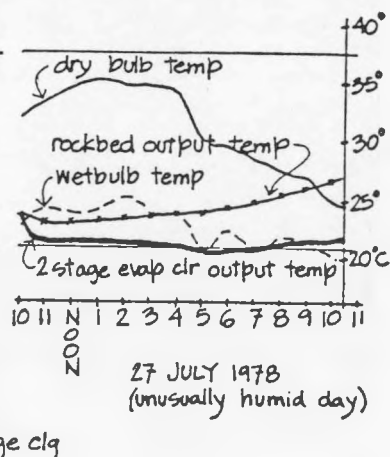 40°
dry bulb temp
35°
30°
rockbed output temp
wetbulb temp
25°
2 stage evap clr output temp
20°C
10 11 NOON 1 2 3 4 5 6 7 8 9 10 11
27 JULY 1978
(unusually humid day)
ge clg